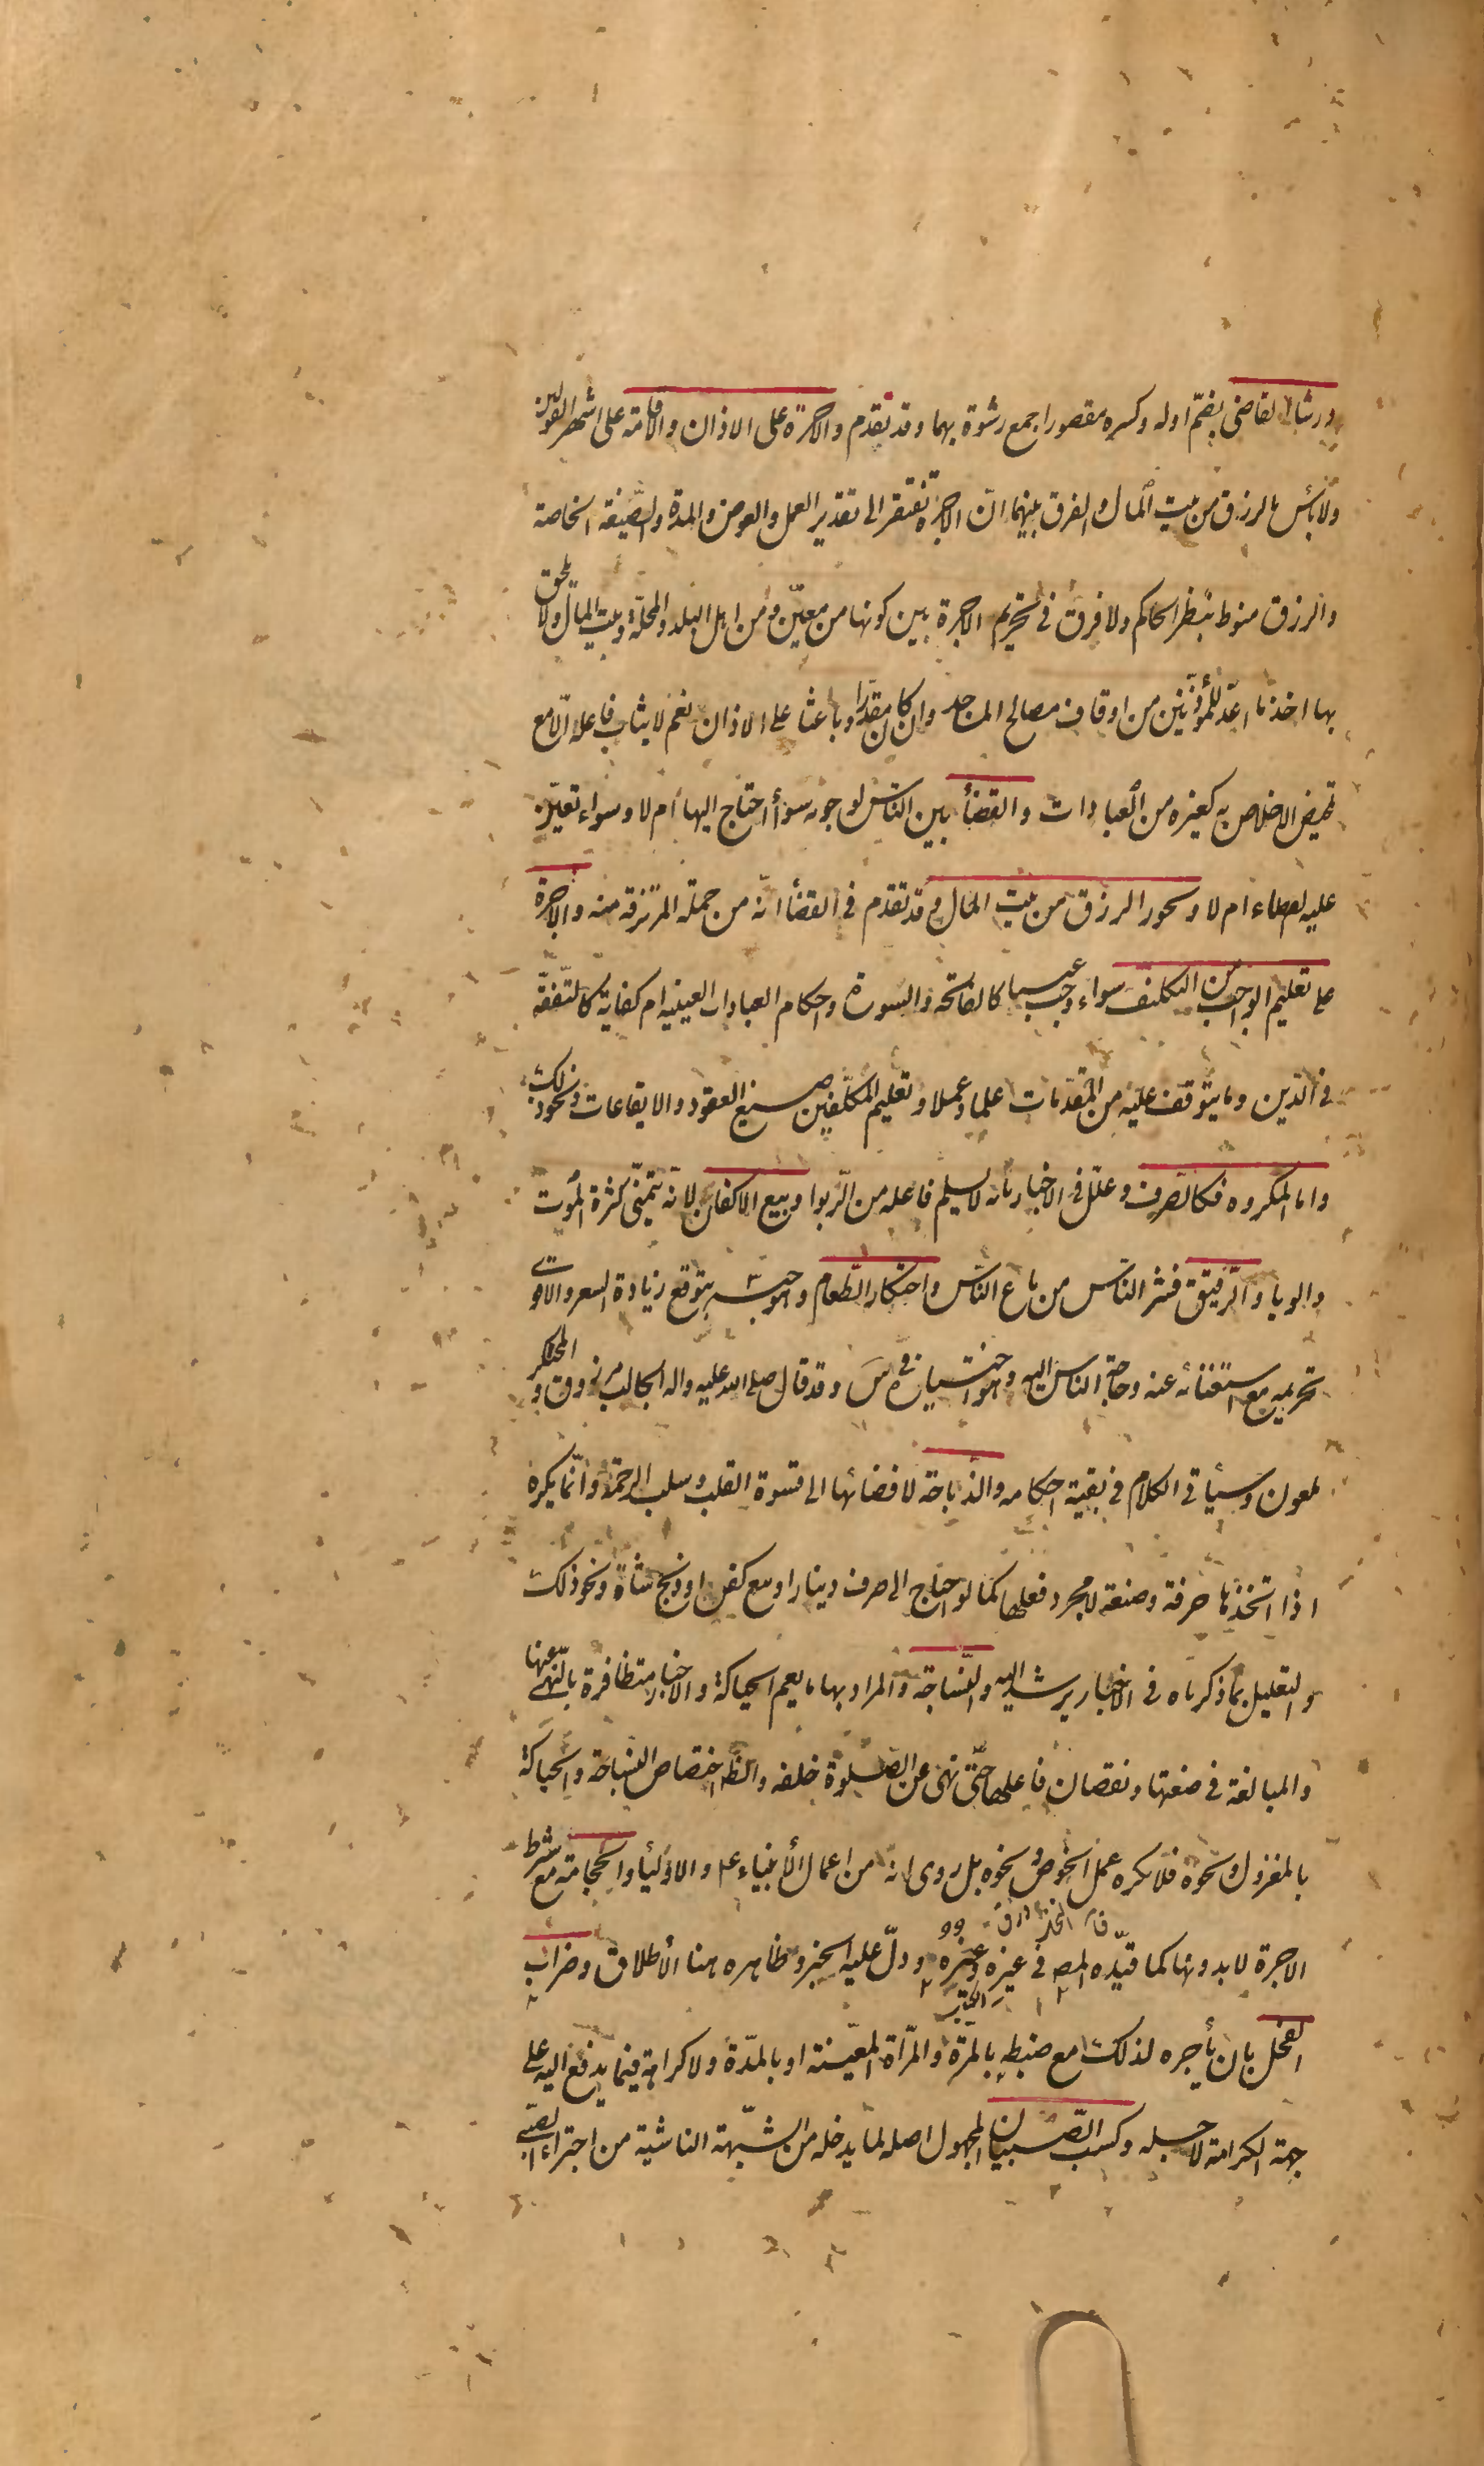 ورشا القاضي بضمّ اوله وكسره مقصورا جمع رشوة بهما وقد تقدم والاجرة على الاذان والاقامة على اشهر القولين
ولا بأس بالرزق من بيت المال والفرق بينهما انّ الاجرة تفتقر الى تقدير العمل والعوض والمدة والصّيغة الخاصة
والرزق منوط بنظر الحاكم ولا فرق في تحريم الاجرة بين كونها من معيّن ومن اهل البلد والمحلّة وبيت المال ولا يلحق
بها اخذ ما اعدّ للمؤذّنين من اوقاف مصالح المساجد وان كان مقدّرا وباعثا على الاذان نعم لا يثاب فاعله الّا مع
تمحيض الاخلاص به كغيره من العبادات والقضأ بين النّاس لوجوبه سوأ احتاج اليها ام لا وسواء تعيّن
عليه القضاء ام لا ويجوز الرزق من بيت المال وقد تقدم في القضأ انّه من جملة المرتزقة منه والاجرة
على تعليم الواجب من التكليف سواء وجب عينا كالفاتحة والسورة واحكام العبادات العينيه ام كفاية كالتّفقّه
في الدّين وما يتوقف عليه من المقدّمات علما وعملا وتعليم المكلّفين صيغ العقود والايقاعات ونحو ذلك
واما المكروه فكالصّرف وعلّل في الاخبار بانه لا يسلم فاعله من الرّبوا وبيع الاكفان لانه يتمنّى كثرة الموت
والوبا والرّقيق فشر النّاس من باع النّاس واحتكار الطّعام وهو حبسه بتوقع زيادة السعر والاقوى
تحريمه مع استغنائه عنه وحاجة الناس اليه وهو اختياره في س وقد قال صلى الله عليه واله الجالب مرزوق والمحتكر
ملعون وسيأتي الكلام في بقية احكامه والذّباحة لافضائها الى قسوة القلب وسلب الرحمة وانّما يكره
اذا اتّخذها حرفة وصنعة لا مجرد فعلها كما لو احتاج الى صرف دينار او بيع كفن او ذبح شاة ونحو ذلك
والتعليل بما ذكرناه في الاخبار يرشد اليه والنّساجة والمراد بها ما يعم الحياكة والاخبار متظافرة بالنّهى عنها
والمبالغة في ضعتها ونقصان فاعلها حتّى نهى عن الصّلوة خلفه والظ اختصاص النساجة والحياكة
بالمغزول ونحوه فلا يكره عمل الخوص ونحوه بل روى انه من اعمال الأنبياء ع والاوليأ والحجامة مع شرط
الاجرة لا بدونها كما قيّده المص في غيره وغيره ودلّ عليه الخبر وظاهره هنا الأطلاق وضراب
الفحل بان يأجره لذلك مع ضبطه بالمرّة والمرّات المعيّنة او بالمدّة ولا كراهة فيما يدفع اليه على
جهة الكرامة لاجله وكسب الصّبيان المجهول اصله لما يدخله من الشّبهة الناشية من اجتراء الصّبى